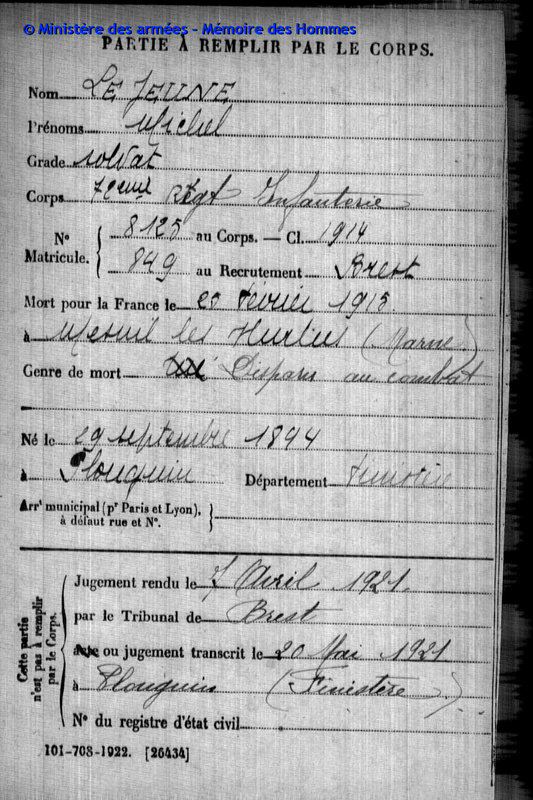 © Ministère des armées - Mémoire des Hommes
PARTIE À REMPLIR PAR LE CORPS.
Nom LE JEUNE
Prénoms Michel
Grade soldat
Corps Régt Infanterie
N° Matricule. { 8125 au Corps. — Cl. 1914
849 au Recrutement Brest
Mort pour la France le 25 février 1915
à Mesnil les Hurlus (Marne)
Genre de mort Disparu au combat
Né le 29 septembre 1894
à Plouguin Département Finistère
Arrt municipal (pr Paris et Lyon),
à défaut rue et N°. }
Cette partie n'est pas à remplir par le Corps.
Jugement rendu le 7 Avril 1921.
par le Tribunal de Brest
acte ou jugement transcrit le 20 Mai 1921
à Plouguin (Finistère)
N° du registre d'état civil
101-708-1922. [26434]